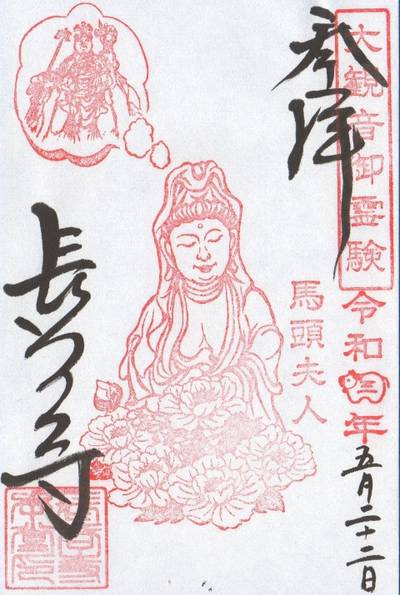 奉拝
大観音御霊験
令和三年
五月二十二日
馬頭夫人
長谷寺